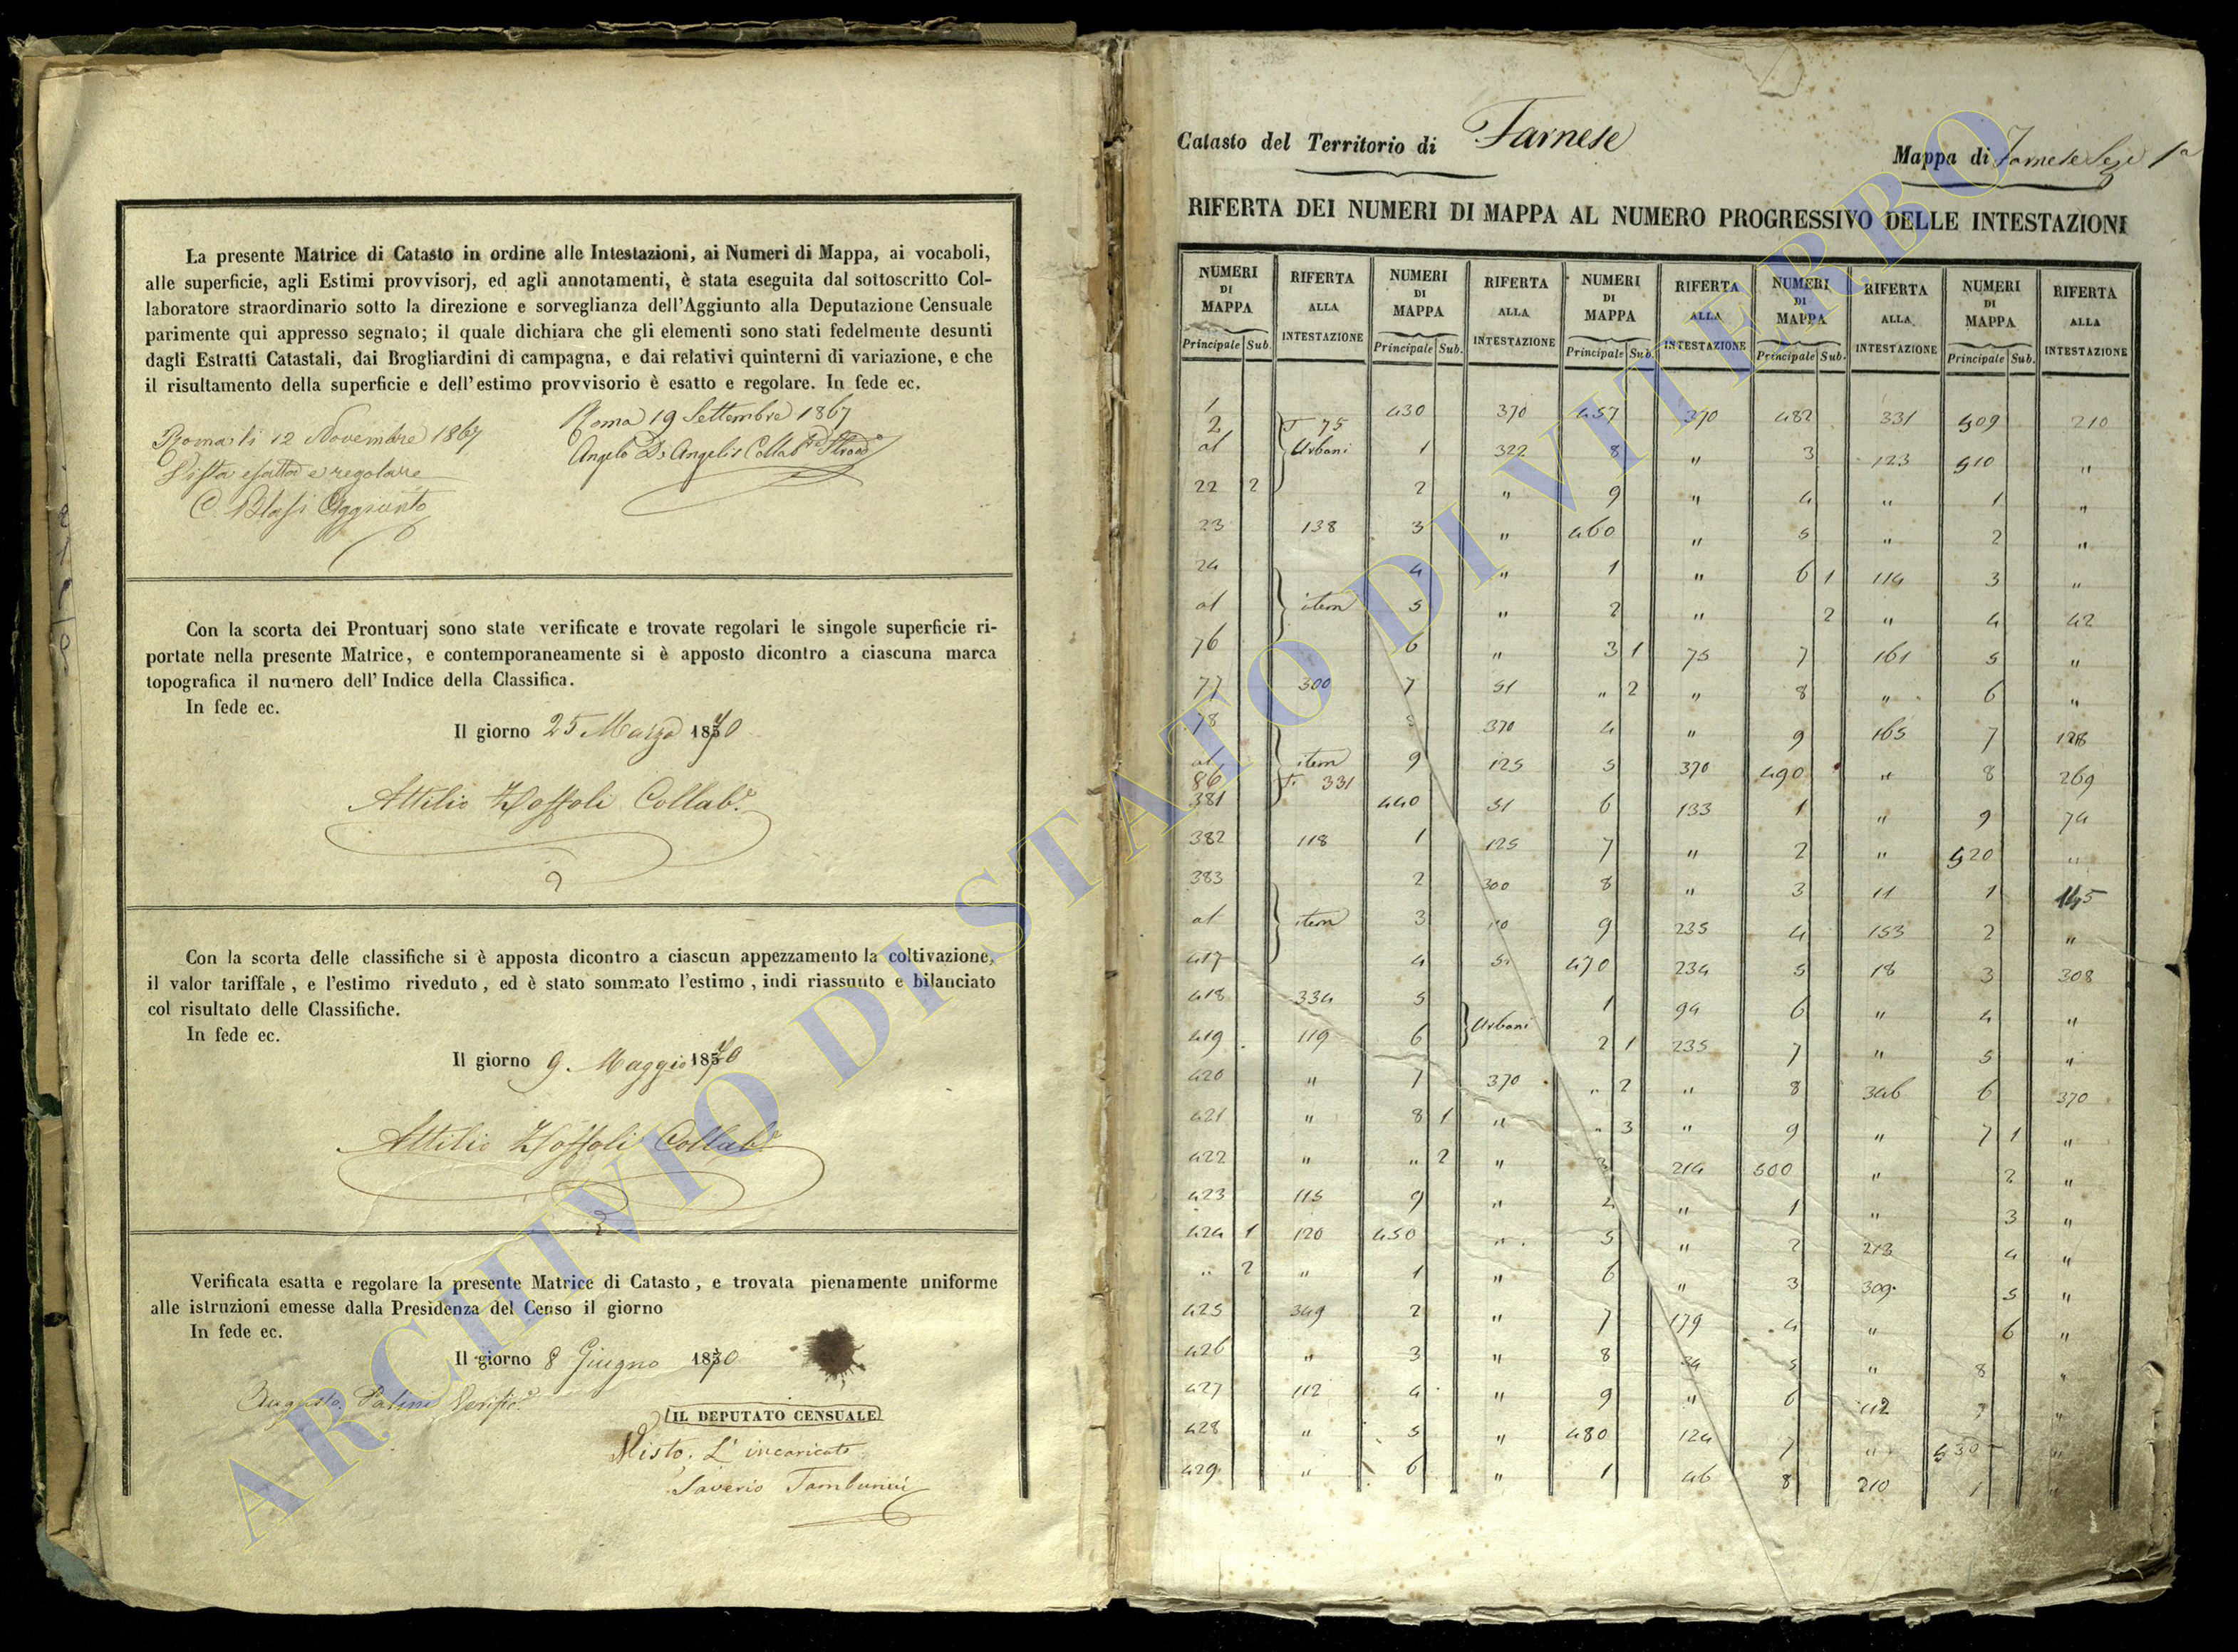 La presente Matrice di Catasto in ordine alle Intestazioni, ai Numeri di Mappa, ai vocaboli,
alle superficie, agli Estimi provvisorj, ed agli annotamenti, è stata eseguita dal sottoscritto Col-
laboratore straordinario sotto la direzione e sorveglianza dell'Aggiunto alla Deputazione Censuale
parimente qui appresso segnato; il quale dichiara che gli elementi sono stati fedelmente desunti
dagli Estratti Catastali, dai Brogliardini di campagna, e dai relativi quinterni di variazione, e che
il risultamento della superficie e dell'estimo provvisorio è esatto e regolare. In fede ec.
Roma 19 Settembre 1867
Angelo De Angelis
Roma li 12 Novembre 1867
Vista esatta e regolare
C. Blasi Aggiunto
Con la scorta dei Prontuarj sono state verificate e trovate regolari le singole superficie ri-
portate nella presente Matrice, e contemporaneamente si è apposto dicontro a ciascuna marca
topografica il numero dell'Indice della Classifica.
In fede ec.
Il giorno 25 Marzo 1870
Attilio Collab.e
Con la scorta delle classifiche si è apposta dicontro a ciascun appezzamento la coltivazione,
il valor tariffale, e l'estimo riveduto, ed è stato sommato l'estimo, indi riassunto e bilanciato
col risultato delle Classifiche.
In fede ec.
Il giorno 9. Maggio 1870
Attilio Collab.e
Verificata esatta e regolare la presente Matrice di Catasto, e trovata pienamente uniforme
alle istruzioni emesse dalla Presidenza del Censo il giorno
In fede ec.
Il giorno 8 Giugno 1870
Augusto Verific.e
IL DEPUTATO CENSUALE
Visto. L'incaricato
Saverio Tamburini
Catasto del Territorio di Farnese
Mappa di Farnese Sez.e 1a
RIFERTA DEI NUMERI DI MAPPA AL NUMERO PROGRESSIVO DELLE INTESTAZIONI
NUMERI DI MAPPA RIFERTA ALLA INTESTAZIONE NUMERI DI MAPPA RIFERTA ALLA INTESTAZIONE NUMERI DI MAPPA RIFERTA ALLA INTESTAZIONE NUMERI DI MAPPA RIFERTA ALLA INTESTAZIONE NUMERI DI MAPPA RIFERTA ALLA INTESTAZIONE
Principale Sub. Principale Sub. Principale Sub. Principale Sub. Principale Sub.
1
2 75
al Urbani
22 2
23 138
24
al item
76
77 300
78
al item
86 331
381
382 118
383
al item
417
418 334
419 119
420 "
421 "
422 "
423 115
424 1 120
" 2 "
425 349
426 "
427 112
428 "
429 "
430 370
1 322
2 "
3 "
4 "
5 "
6 "
7 51
370
9 125
440 51
1 125
2 300
3
4
5 Urbani
6
7 370
8 1 "
" 2 "
9 "
450 "
1 "
2 "
3 "
4 "
5 "
6 "
457 370
8 "
9 "
460 "
1 "
2 "
3 1 75
" 2 "
4 "
5 370
6 133
7 "
8 "
9 235
470 234
1 94
2 1 235
" 2 "
" 3 "
214
"
5 "
6 "
7 179
8
9 "
480 124
1 46
482 331
3 123
4 "
5 "
6 1 114
2 "
7 161
8 "
9 165
490 "
1 "
2 "
3 11
4 153
5 18
6 "
7 "
8 346
9 "
500 "
1 "
2
3 309
4 "
5 "
6 112
7 "
8 210
509 210
510 "
1 "
2 "
3 "
4 42
5 "
6 "
7
8 269
9 74
520 "
1 145
2 "
3 308
4 "
5 "
6 370
7 1 "
2 "
3 "
4 "
5 "
6 "
8 "
9 "
530 "
1 "
ARCHIVIO DI STATO DI VITERBO